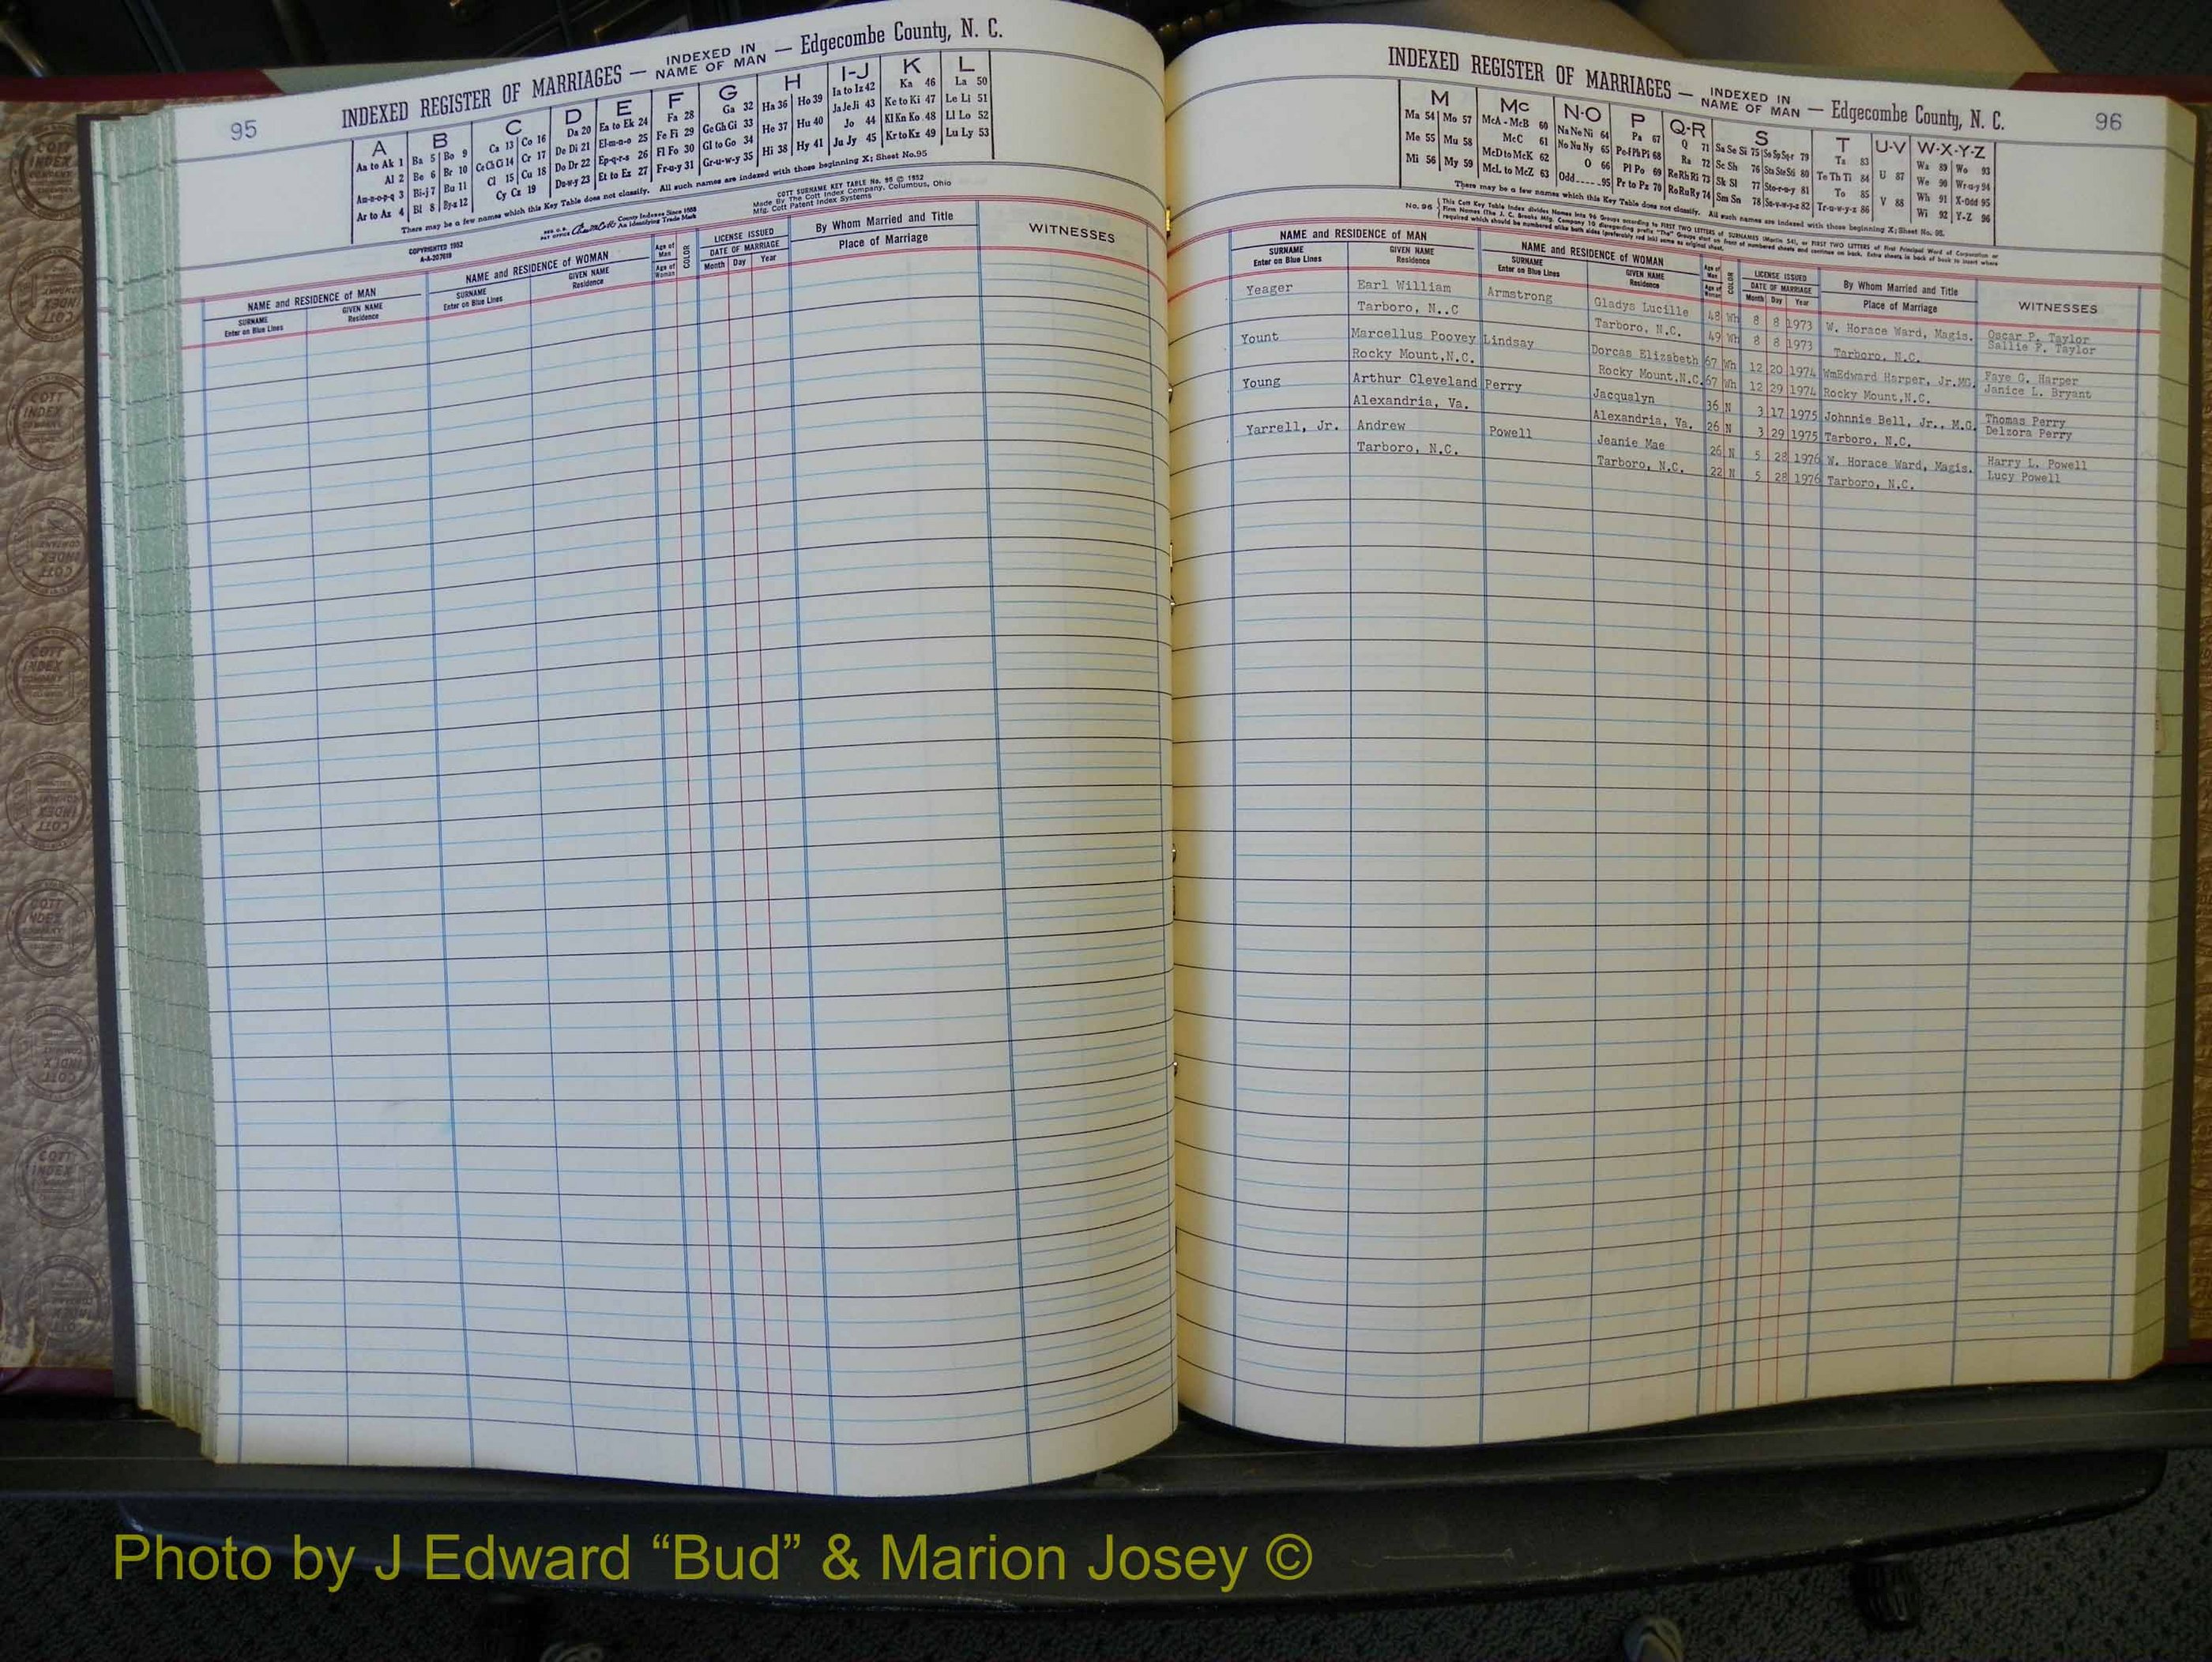 95
INDEXED REGISTER OF MARRIAGES — INDEXED IN NAME OF MAN — Edgecombe County, N. C.
A B C D E F G H I-J K L
Aa to Ak 1 Ba 5 Bo 9 Ca 13 Co 16 Da 20 Ea to Ek 24 Fa 28 Ga 32 Ha 36 Ho 39 Ia to Iz 42 Ka 46 La 50
Al 2 Be 6 Br 10 Ce Ch Ci 14 Cr 17 De Di 21 El-m-n-o 25 Fe Fi 29 Ge Gh Gi 33 He 37 Hu 40 Ja Je Ji 43 Ke to Ki 47 Le Li 51
Am-n-o-p-q 3 Bi-j 7 Bu 11 Cl 15 Cu 18 Do Dr 22 Ep-q-r-s 26 Fl Fo 30 Gl to Go 34 Hi 38 Hy 41 Jo 44 Kl Kn Ko 48 Ll Lo 52
Ar to Az 4 Bl 8 By-z 12 Cy Cz 19 Du-w-y 23 Et to Ez 27 Fr-u-y 31 Gr-u-w-y 35 Ju Jy 45 Kr to Kz 49 Lu Ly 53
There may be a few names which this Key Table does not classify. All such names are indexed with those beginning X; Sheet No.95
COPYRIGHTED 1952
A-A-207619
County Indexes Since 1888
An Identifying Trade Mark
COTT SURNAME KEY TABLE No. 96 © 1952
Made By The Cott Index Company, Columbus, Ohio
Mfg. Cott Patent Index Systems
NAME and RESIDENCE of MAN
SURNAME
Enter on Blue Lines
GIVEN NAME
Residence
NAME and RESIDENCE of WOMAN
SURNAME
Enter on Blue Lines
GIVEN NAME
Residence
Age of Man
Age of Woman
COLOR
LICENSE ISSUED
DATE OF MARRIAGE
Month Day Year
By Whom Married and Title
Place of Marriage
WITNESSES
INDEXED REGISTER OF MARRIAGES — INDEXED IN NAME OF MAN — Edgecombe County, N. C.
96
M Mc N-O P Q-R S T U-V W-X-Y-Z
Ma 54 Mo 57 McA-McB 60 Na Ne Ni 64 Pa 67 Q 71 Sa Se Si 75 So Sp Sq-r 79 Ta 83 Wa 89 Wo 93
Me 55 Mu 58 McC 61 No Nu Ny 65 Pe-f Ph Pi 68 Ra 72 Sc Sh 76 Sta Ste Sti 80 Te Th Ti 84 U 87 We 90 Wr-u-y 94
Mi 56 My 59 McD to McK 62 O 66 Pl Po 69 Re Rh Ri 73 Sk Sl 77 Sto-r-u-y 81 To 85 V 88 Wh 91 X-Odd 95
McL to McZ 63 Odd-----95 Pr to Pz 70 Ro Ru Ry 74 Sm Sn 78 Su-v-w-y-z 82 Tr-u-w-y-z 86 Wi 92 Y-Z 96
There may be a few names which this Key Table does not classify. All such names are indexed with those beginning X; Sheet No. 95.
NAME and RESIDENCE OF MAN
SURNAME
Enter on Blue Lines
GIVEN NAME
Residence
NAME and RESIDENCE OF WOMAN
SURNAME
Enter on Blue Lines
GIVEN NAME
Residence
Age of Man
Age of Woman
COLOR
LICENSE ISSUED
DATE OF MARRIAGE
Month Day Year
By Whom Married and Title
Place of Marriage
WITNESSES
Yeager Earl William Armstrong Gladys Lucille 48 Wh 8 8 1973 W. Horace Ward, Magis. Oscar P. Taylor
Tarboro, N..C Tarboro, N.C. 49 Wh 8 8 1973 Tarboro, N.C. Sallie F. Taylor
Yount Marcellus Poovey Lindsay Dorcas Elizabeth 67 Wh 12 20 1974 WmEdward Harper, Jr.MG. Faye G. Harper
Rocky Mount,N.C. Rocky Mount,N.C. 67 Wh 12 29 1974 Rocky Mount,N.C. Janice L. Bryant
Young Arthur Cleveland Perry Jacqualyn 36 N 3 17 1975 Johnnie Bell, Jr., M.G. Thomas Perry
Alexandria, Va. Alexandria, Va. 26 N 3 29 1975 Tarboro, N.C. Delzora Perry
Yarrell, Jr. Andrew Powell Jeanie Mae 26 N 5 28 1976 W. Horace Ward, Magis. Harry L. Powell
Tarboro, N.C. Tarboro, N.C. 22 N 5 28 1976 Tarboro, N.C. Lucy Powell
Photo by J Edward “Bud” & Marion Josey ©